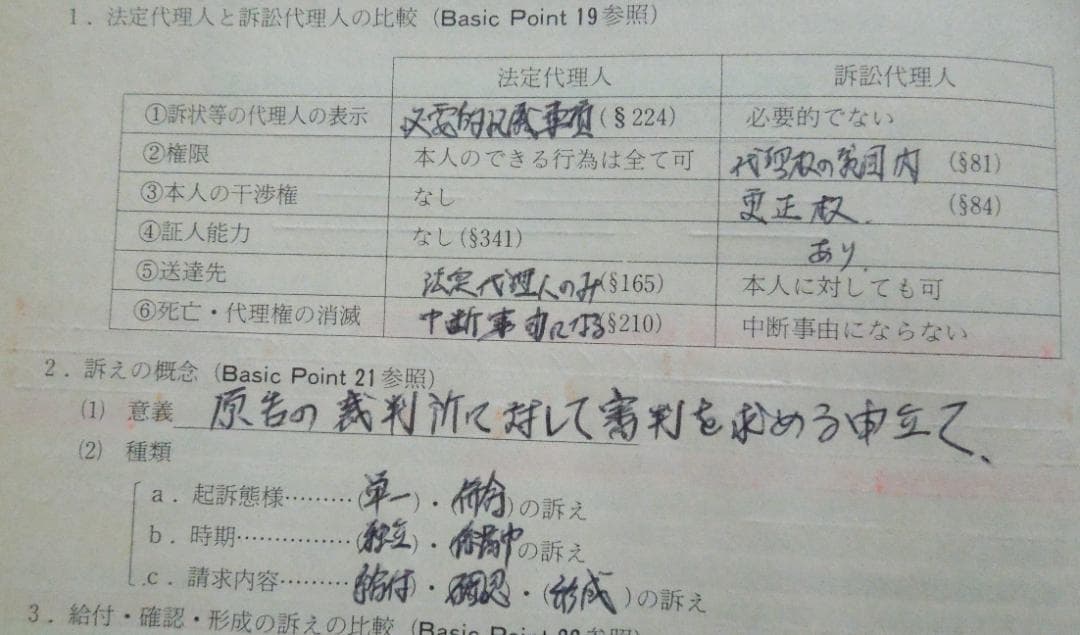 1. 法定代理人と訴訟代理人の比較 (Basic Point 19参照)
法定代理人 訴訟代理人
①訴状等の代理人の表示 必要的記載事項 (§224) 必要的でない
②権限 本人のできる行為は全て可 代理权の範囲内 (§81)
③本人の干渉権 なし 更正权. (§84)
④証人能力 なし(§341) あり.
⑤送達先 法定代理人のみ(§165) 本人に対しても可
⑥死亡・代理権の消滅 中断事由になる(§210) 中断事由にならない
2. 訴えの概念 (Basic Point 21参照)
(1) 意義 原告の裁判所に対して審判を求める申立て、
(2) 種類
a. 起訴態様………(単一)・(併合)の訴え
b. 時期……………(独立)・(係属中の訴え
c. 請求内容………給付)・確認・(形成)の訴え
3. 給付・確認・形成の訴えの比較 (Basic Point 22参照)